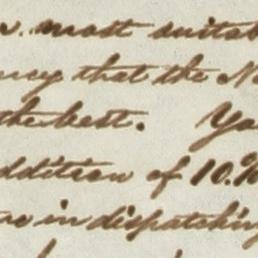 most suitab
ncy that the N
the best. Yo
ddition of 10.%
in dispatching